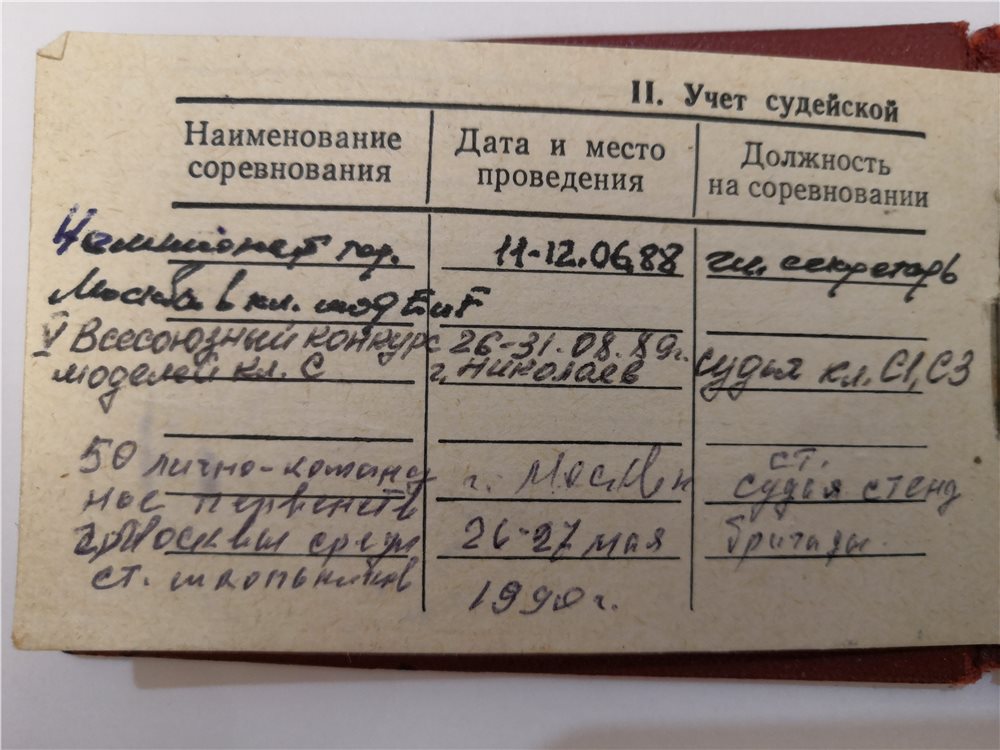 II. Учет судейской
Наименование соревнования
Дата и место проведения
Должность на соревновании
Чемпионат гор.
Москва в кл. мод Е и F
11-12.06.88
гл. секретарь
V Всесоюзный конкурс
моделей кл. С
26-31.08.89г.
г. Николаев
судья кл. С1, С3
50 лично-команд
ное первенств
г. Москвы среди
ст. школьников
г. Москва
26-27 мая
1990 г.
ст.
судья стенд
бригады.